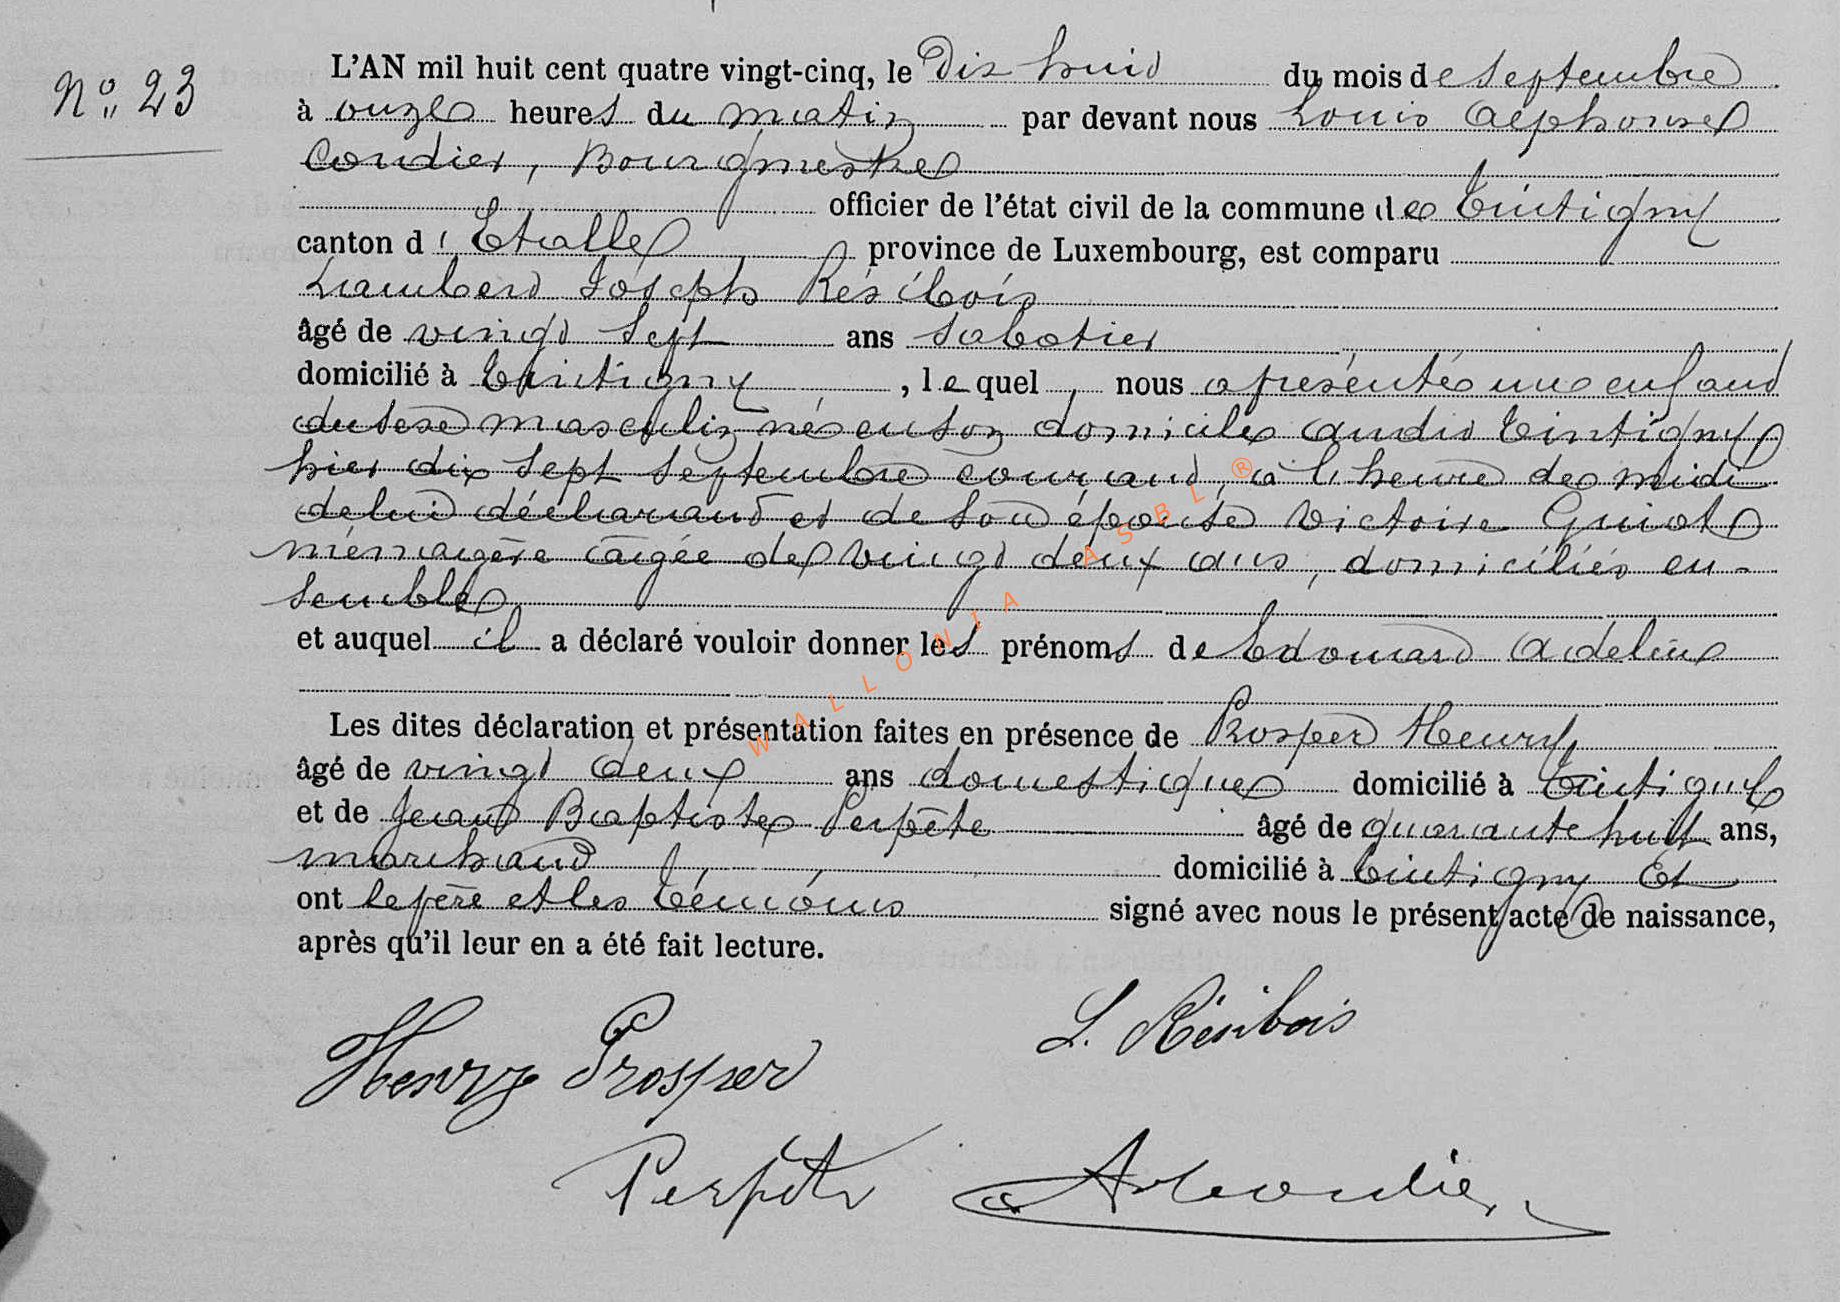 N° 23
L'AN mil huit cent quatre vingt-cinq, le Dix huit du mois de Septembre
à onze heures du matin par devant nous Louis Alphonse
Coudier, Bourgmestre
officier de l'état civil de la commune de Tintigny
canton d'Etalle province de Luxembourg, est comparu
Lambert Joseph Résibois
âgé de vingt sept ans sabotier
domicilié à Tintigny, lequel nous a présenté un enfant
du sexe masculin né en son domicile audit Tintigny
hier dix sept septembre courant, à l'heure de midi
de lui déclarant et de son épouse Victoire Guiot
ménagère âgée de vingt deux ans, domiciliés en-
semble
et auquel il a déclaré vouloir donner les prénoms de Edouard Adelin
Les dites déclaration et présentation faites en présence de Prosper Henry
âgé de vingt deux ans domestique domicilié à Tintigny
et de Jean Baptiste Perpète âgé de quarante huit ans,
marchand domicilié à Tintigny Et
ont le père et les témoins signé avec nous le présent acte de naissance,
après qu'il leur en a été fait lecture.
L. Résibois
Henry Prosper
Perpète
WALLONIA ASBL ®